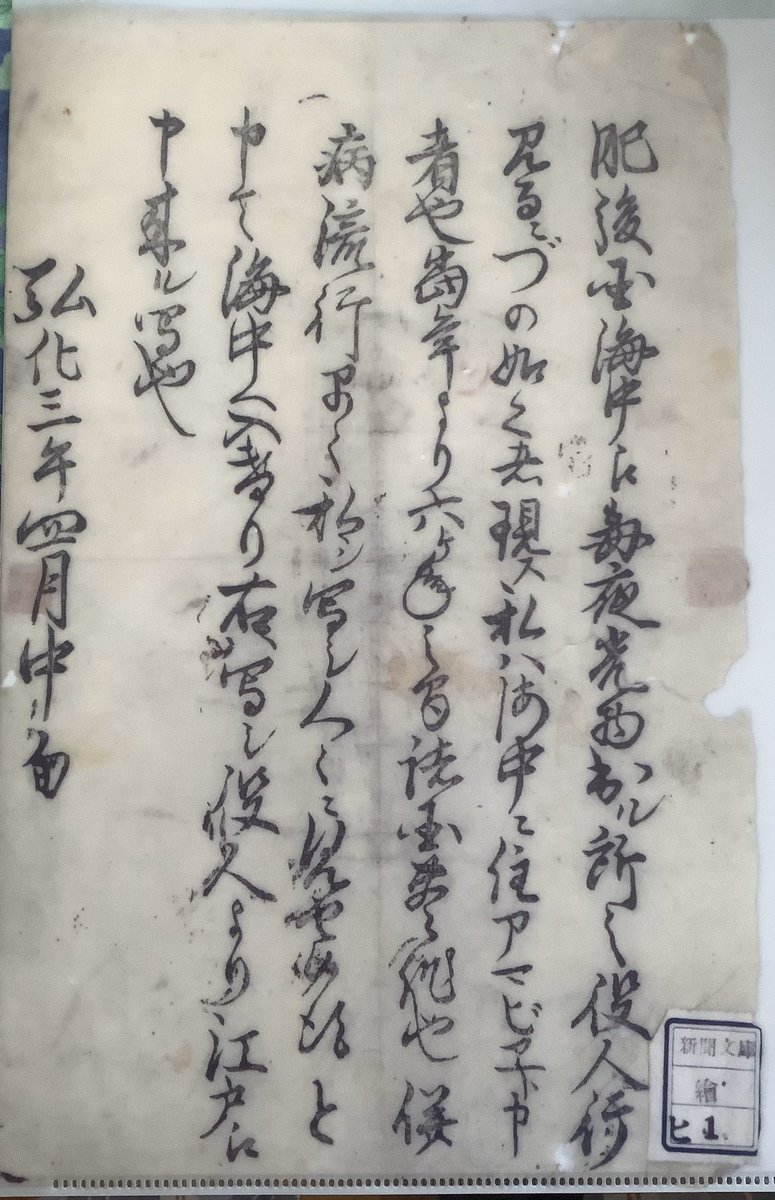 肥後国海中江毎夜光物出ル所之役人行
見るニづの如く者現ス私ハ海中ニ住アマビヱト申
者也当年より六ケ年之間諸国豊作也併
病流行早々私ヲ写シ人々ニ見せ候得と
申て海中へ入けり右写シ役人より江戸江
申来ル写也
弘化三年四月中旬
新聞文庫
絵
ヒ 1